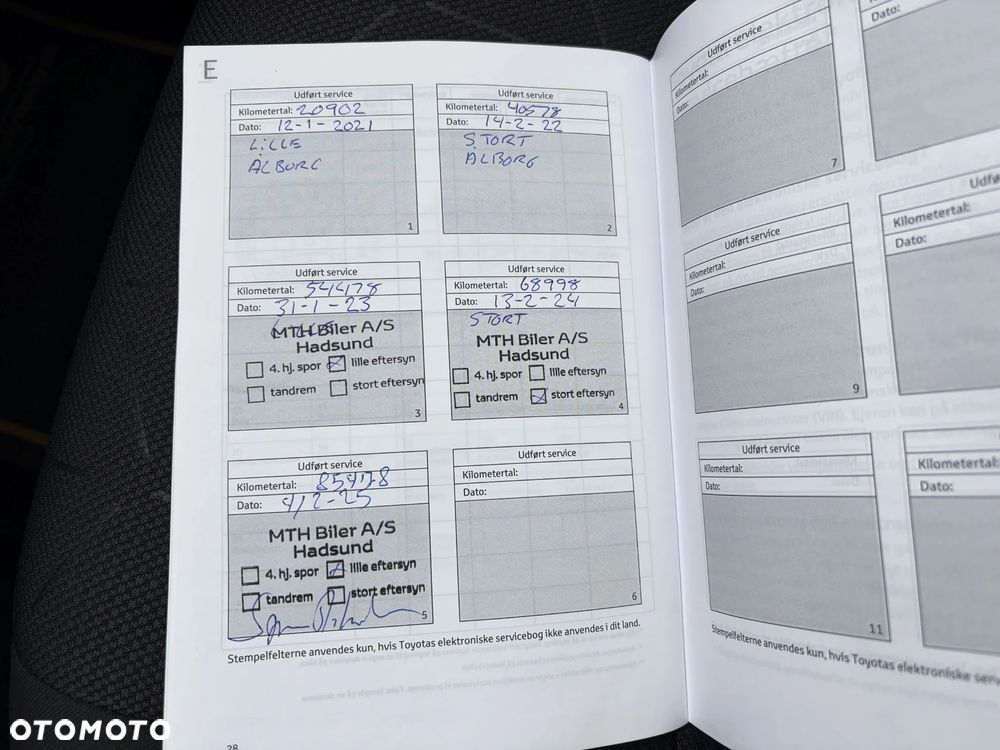 E
Udført service
Kilometertal: 20902
Dato: 12-1-2021
LILLE
ALBORG
1
Udført service
Kilometertal: 40578
Dato: 14-2-22
STORT
ALBORG
2
Udført service
Kilometertal: 54478
Dato: 31-1-23
MTH Biler A/S
Hadsund
4. hj. spor lille eftersyn
tandrem stort eftersyn
3
Udført service
Kilometertal: 68998
Dato: 13-2-24
STORT
MTH Biler A/S
Hadsund
4. hj. spor lille eftersyn
tandrem stort eftersyn
4
Udført service
Kilometertal: 85478
Dato: 4/2-25
MTH Biler A/S
Hadsund
4. hj. spor lille eftersyn
tandrem stort eftersyn
5
Udført service
Kilometertal:
Dato:
6
Stempelfelterne anvendes kun, hvis Toyotas elektroniske servicebog ikke anvendes i dit land.
28
Udført service
Kilometertal:
Dato:
7
Dato:
Udført service
Kilometertal:
Dato:
9
Kilometertal:
Dato:
Udført service
Kilometertal:
Dato:
11
Kilometertal:
Dato:
Stempelfelterne anvendes kun, hvis Toyotas elektroniske
OTOMOTO